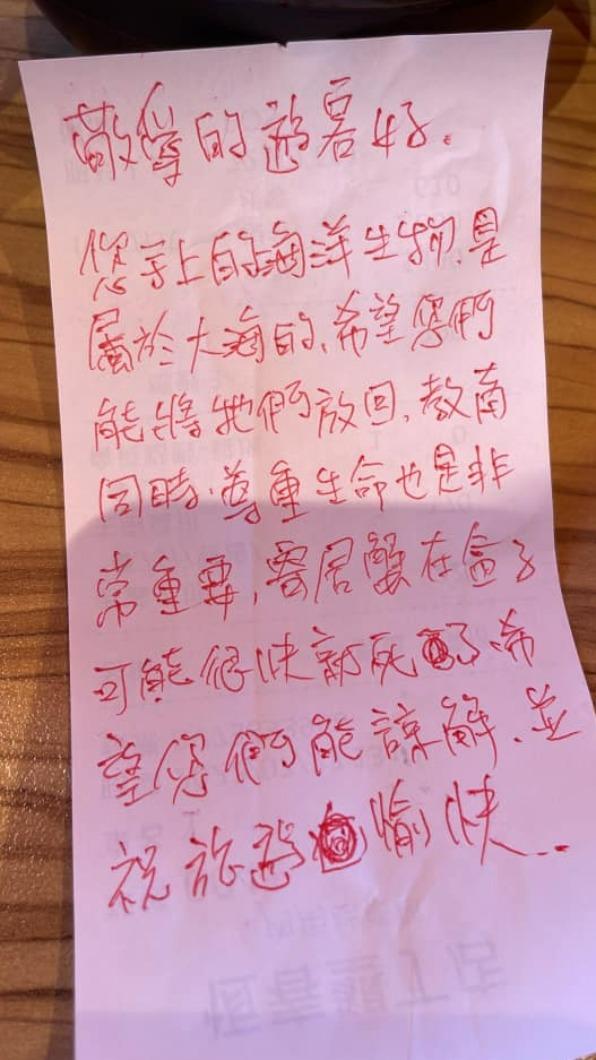 敬愛的遊客好.
您手上的海洋生物,是
屬於大海的,希望您們
能將牠們放回,教育
同時,尊重生命也是非
常重要,寄居蟹在盒子
可能很快就死了,希
望您們能諒解,並
祝旅遊愉快..